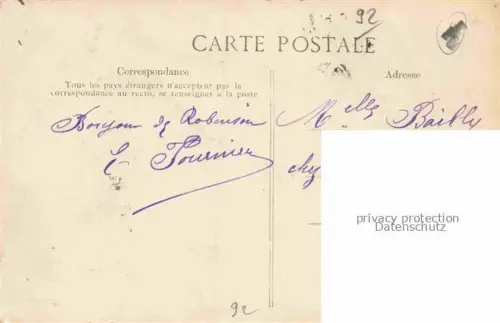 92
CARTE POSTALE
Correspondance
Tous les pays étrangers n'acceptent pas la
correspondance au recto, se renseigner à la poste
Bonjour de Robinson
E Fournier
Adresse
Melle Bailly
chez
privacy protection
Datenschutz
92